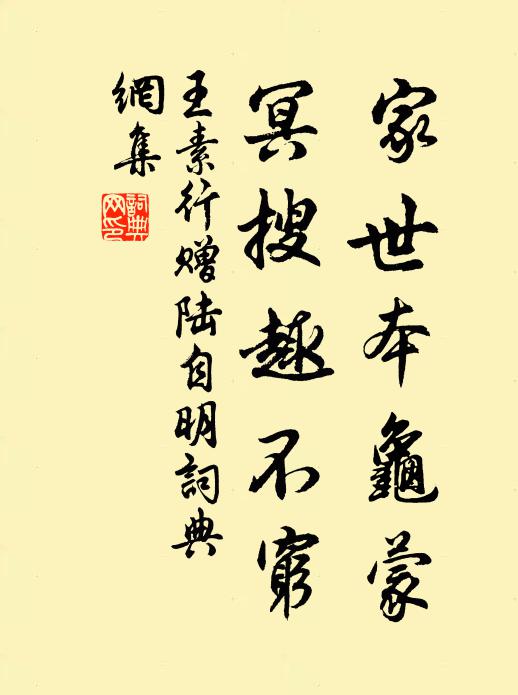 家世本龜蒙
冥搜趣不窮
王素行贈陸自明詞典
網集
詞典網印